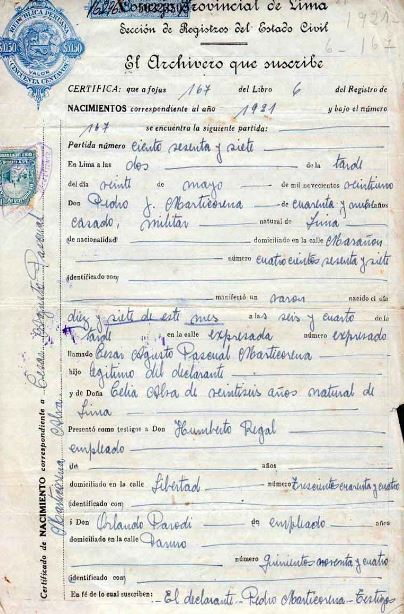 REPUBLICA PERUANA
S/0.50
S/0.50
VALOR
CINCUENTA CENTAVOS
Concejo Provincial de Lima
Sección de Registros del Estado Civil
1921
6-167
El Archivero que suscribe
CERTIFICA: que a fojas 167 del Libro 6 del Registro de
NACIMIENTOS correspondiente al año 1921 y bajo el número
167 se encuentra la siguiente partida:
Partida número ciento sesenta y siete
En Lima a las dos de la tarde
del día veinte de mayo de mil novecientos veintiuno
Don Pedro J. Marticorena de cuarenta y años
casado, militar natural de Lima
de nacionalidad domiciliado en la calle Marañon
número cuatrocientos sesenta y siete
identificado con
manifestó un varon nacido el día
diez y siete de este mes a las seis y cuarto de la
tarde en la calle expresada número expresado
llamado Cesar Agusto Pascual Marticorena
hijo legitimo del declarante
y de Doña Celia Alva de veintiseis años natural de
Lima
Presentó como testigos a Don Humberto Regal
empleado
de años
domiciliado en la calle Libertad número Trescientos cuarenta y cuatro
identificado con
i Don Orlando Parodi de empleado años
domiciliado en la calle
número Quinientos noventa y cuatro
identificado con
En fé de lo cual suscriben: El declarante - Pedro Marticorena - Testigos
Certificado de NACIMIENTO correspondiente a Cesar Augusto Pascual
Marticorena Alva